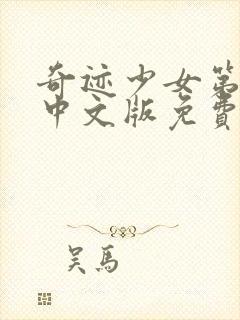 奇迹少女第
中文版免費
吴馬